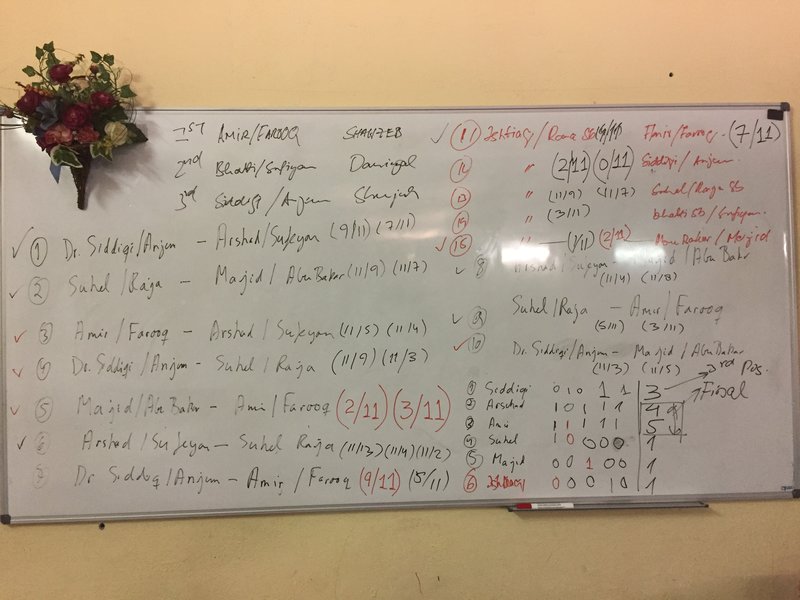 1ST AMIR/FAROOQ SHAHZEB
2nd Bhatti/Sufiyan
3rd Siddiqi/Anjum
① Dr. Siddiqi/Anjum - Arshad/Sufeyan (9/11) (7/11)
② Suhel/Raja - Majid/Abu Bakar (11/9) (11/7)
③ Amir/Farooq - Arshad/Sufeyan (11/5) (11/4)
④ Dr. Siddiqi/Anjum - Suhel/Raja (11/9) (11/3)
⑤ Majid/Abu Bakar - Amir/Farooq (2/11) (3/11)
⑥ Arshad/Sufeyan - Suhel Raja (11/13) (11/4) (11/2)
⑦ Dr Siddiq/Anjum - Amir/Farooq (9/11) (5/11)
⑪ Ishtiaq/Rana Sb (9/11) Amir/Farooq. (7/11)
⑫ " (2/11) (0/11) Siddiqi/Anjum.
⑬ " (11/9) (11/7) Suhel/Raja Sb
⑭ " (3/11) bhatti Sb/Sufiyan.
⑮ " (1/11) (2/11) Abu Bakar/Majid
8 Arshad/Sufeyan - Majid/Abu Bakr
(11/4) (11/8)
⑨ Suhel/Raja - Amir/Farooq
(5/11) (3/11)
⑩ Dr. Siddiqi/Anjum - Majid/Abu Bakar
(11/3) (11/5)
① Siddiqi 0 1 0 1 1 3 3rd Pos.
② Arshad 1 0 1 1 1 4 Final
③ Ami 1 1 1 1 1 5
④ Suhel 1 0 0 0 0 1
⑤ Majid 0 0 1 0 0 1
⑥ Ishtiaq 0 0 0 1 0 1